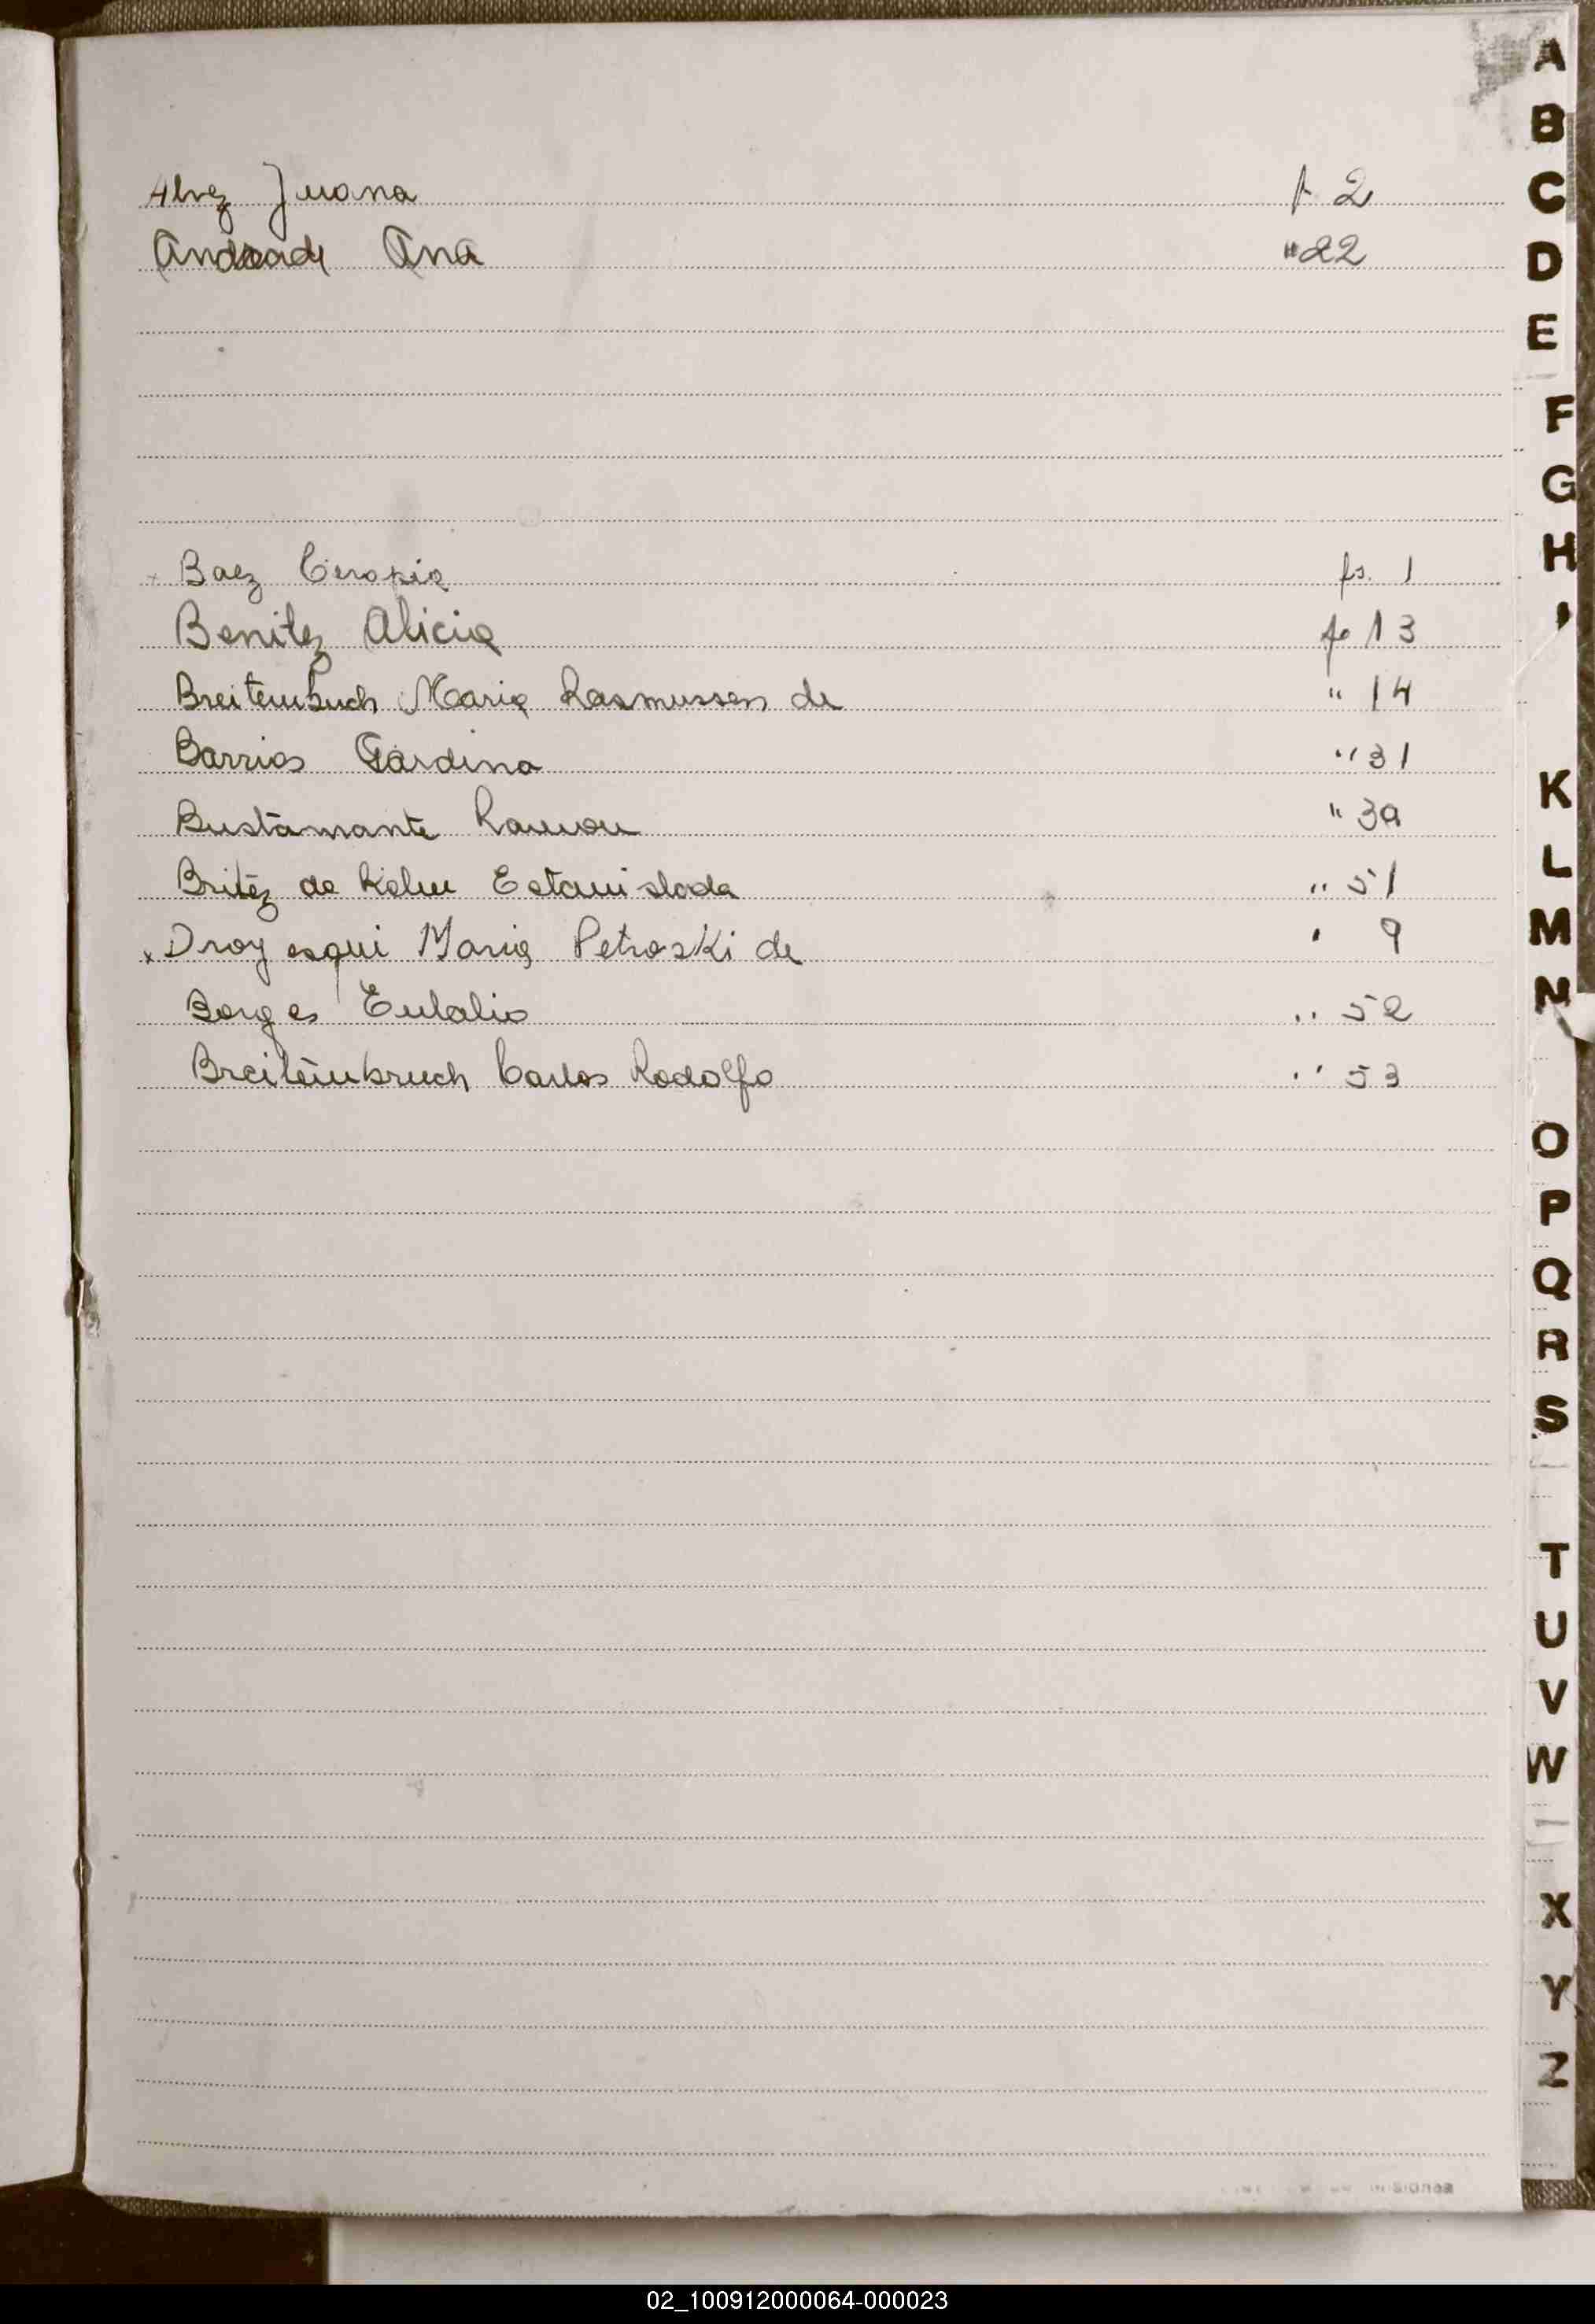 Alvez Juana f 2
Andrade Ana " 22
x Baez Cerapia fs. 1
Benitez Alicia fo 13
Breitembuch Maria Rasmussen de " 14
Barrios Gardina " 31
Bustamante Ramon " 39
Britez de Kelm Estanislada " 51
x Droyesqui Maria Petroski de " 9
Borges Eulalio " 52
Breitembruch Carlos Rodolfo " 53
A
B
C
D
E
F
G
H
K
L
M
N
O
P
Q
R
S
T
U
V
W
X
Y
Z
02_100912000064-000023